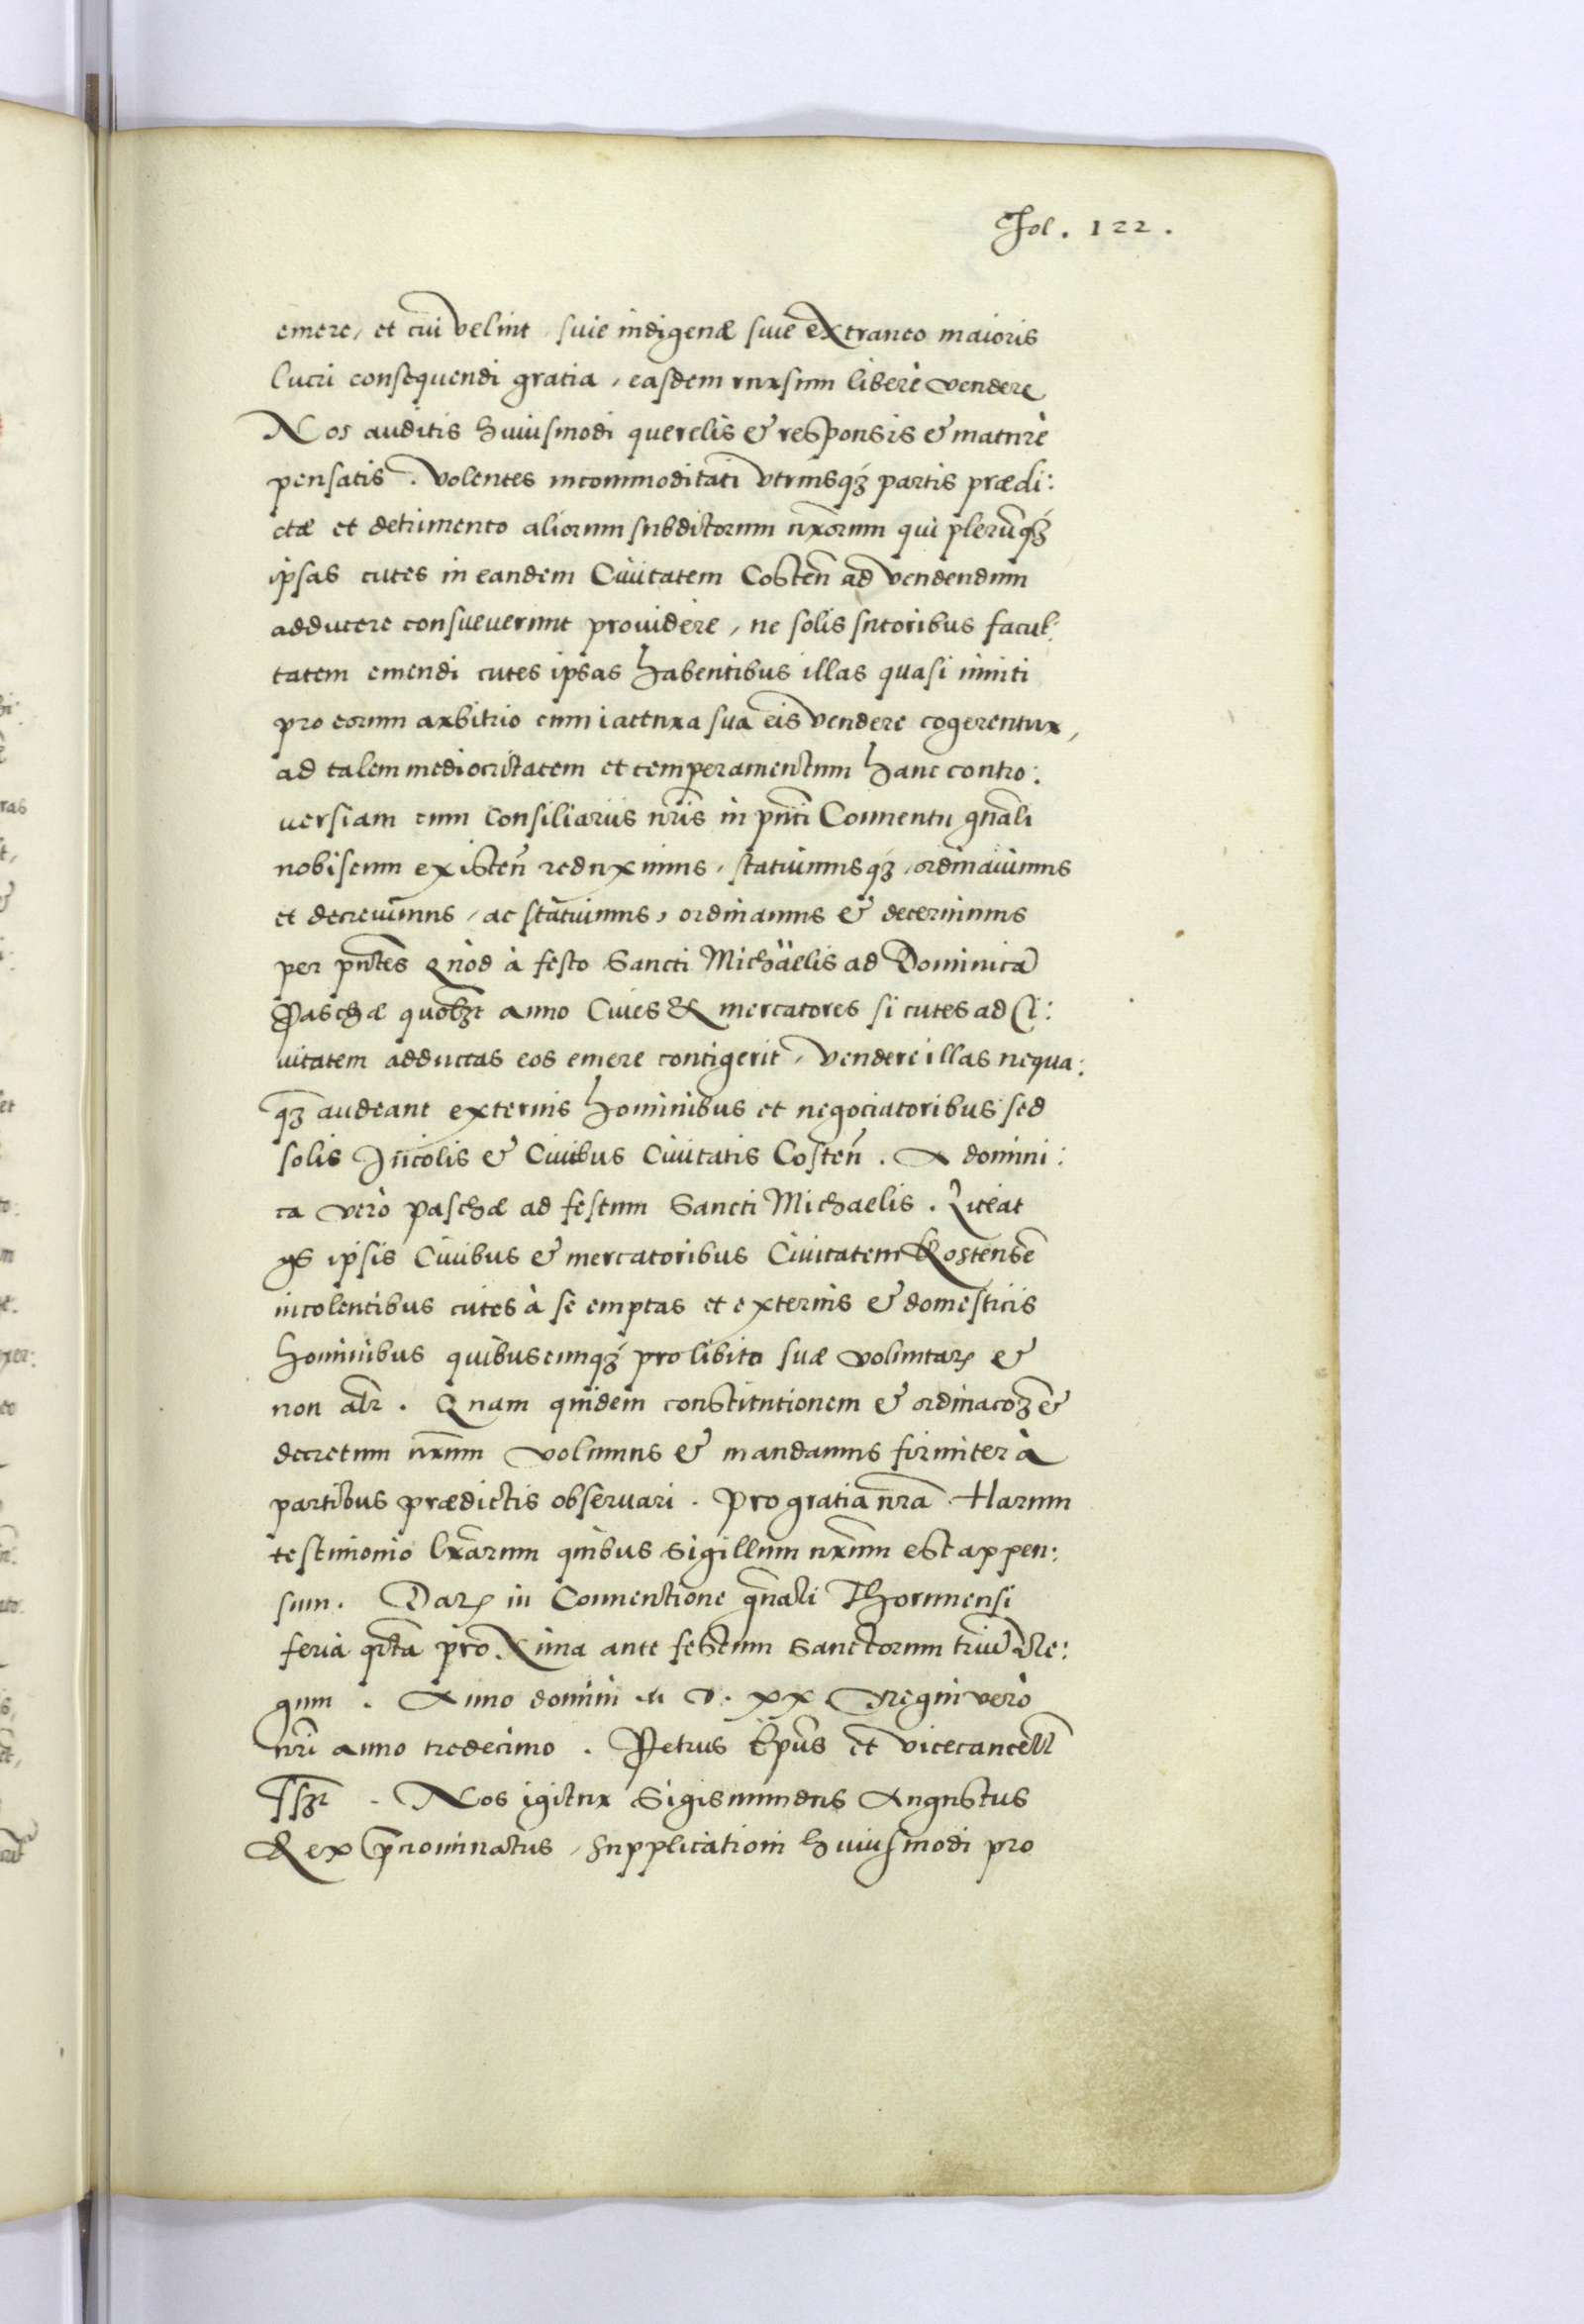 Fol. 122.
emere, et cui velint siue indigenæ siue extraneo maioris
lucri consequendi gratia, easdem rursum liberè vendere
Nos auditis huiusmodi querelis & responsis & maturè
pensatis. Volentes incommoditati vtriusq3 partis prædi:
ctæ et detrimento aliorum subditorum nr̄orum qui plerūq3
ipsas cutes in eandem Ciuitatem Costen̄ ad vendendum
adducere consueuerunt prouidere, ne solis sutoribus facul:
tatem emendi cutes ipsas habentibus illas quasi inuiti
pro eorum arbitrio cum iactura sua eis vendere cogerentur,
ad talem mediocritatem et temperamentum hanc contro:
uersiam cum Consiliariis nr̄is in pn̄ti Conuentu gn̄ali
nobiscum existen̄ reduximus, statuimusq3, ordinauimus
et decreuimus, ac statuimus, ordinamus & decernimus
per pn̄tes Quòd à festo Sancti Michäelis ad Dominicā
Paschæ quolib3t anno Ciues & mercatores si cutes ad Ci:
uitatem adductas eos emere contigerit, vendere illas nequa:
q̄3 audeant externis hominibus et negociatoribus sed
solis Incolis & Ciuibus Ciuitatis Costen̄. A domini:
ca verò Paschæ ad festum Sancti Michaelis. Liceat
ipsis Ciuibus & mercatoribus Ciuitatem Kostensē
incolentibus cutes à se emptas et externis & domesticis
hominibus quibuscunq3 pro libito suæ voluntatꝭ &
non alr̄. Quam quidem constitutionem & ordinacōꝫ &
decretum nr̄um volumus & mandamus firmiter à
partibus prædictis obseruari. Pro gratia nr̄a. Harum
testimonio lr̄arum quibus Sigillum nr̄um est appen:
sum. Datꝭ in Conuentione gn̄ali Thorunensi
feria qr̄ta proxima ante festum Sanctorum triū Re:
gum. Anno domini M. D. XX. Regni verò
nr̄i anno tredecimo. Petrus Ep̄us et vicecancell̄
ss̄t. Nos igitur Sigismundus Augustus
Rex p̄nominatus, Supplicationi huiusmodi pro